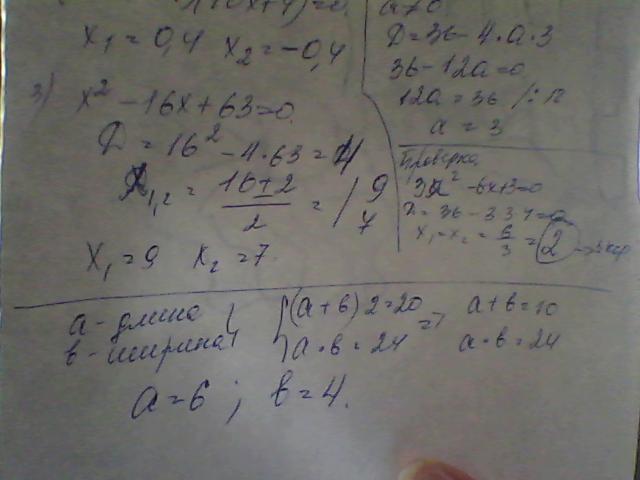 x₁ = 0,4 x₂ = -0,4
3) x² - 16x + 63 = 0
Д = 16² - 4·63 = 4
x₁,₂ = (16 ± 2)/2 = / 9 7
x₁ = 9 x₂ = 7
a ≠ 0
Д = 36 - 4·a·3
36 - 12a = 0
12a = 36
a = 3
Проверка
3x² - 6x + 3 = 0
x₁ = x₂ = 6/3 = 2
a - длина
в - ширина
(a + в) 2 = 20 => a + в = 10
a · в = 24 a · в = 24
a = 6 ; в = 4.